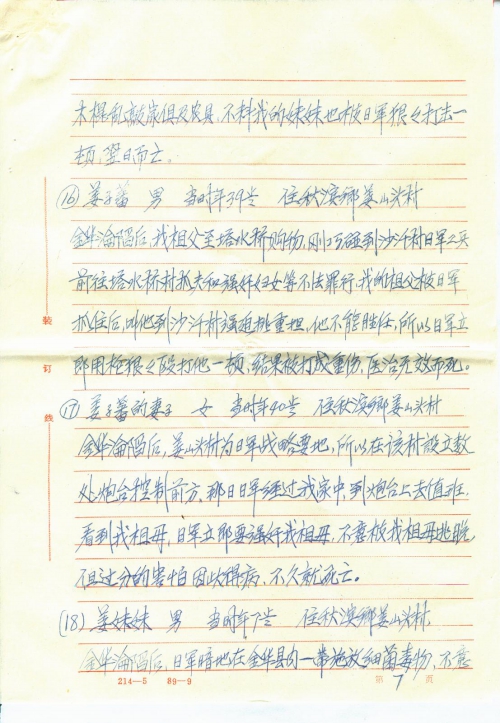 木棍乱敲家俱及农具，不料我的妹妹也被日军狠々打击一
顿，翌日而亡。
⑯ 姜子蕃 男 当时年39岁 住秋滨乡姜山头村
金华沦陷后，我祖父至塔水桥购物，刚巧碰到沙汗村日军二兵
前往塔水桥村抓夫和强奸妇女等不法罪行，我的祖父被日军
抓住后，叫他到沙汗村强迫挑重担，他不能胜任，所以日军立
即用枪狠々殴打他一顿，结果被打成重伤，医治无效而死。
⑰ 姜子蕃的妻子 女 当时年40岁 住秋滨乡姜山头村
金华沦陷后，姜山头村为日军战略要地，所以在该村设立数
处炮台控制前方，那日日军经过我家中，到炮台上去值班，
看到我祖母，日军立即要强奸我祖母，不意被我祖母逃脱，
但过分的害怕因此得病，不久就死亡。
(18) 姜妹妹 男 当时年7岁 住秋滨乡姜山头村，
金华沦陷后，日军暗地在金华县内一带施放细菌毒物，不意
装
订
线
214—5 89—9 第 7 页